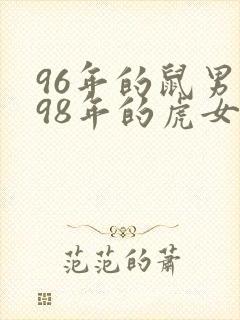 96年的鼠男
98年的虎女
范范的萧